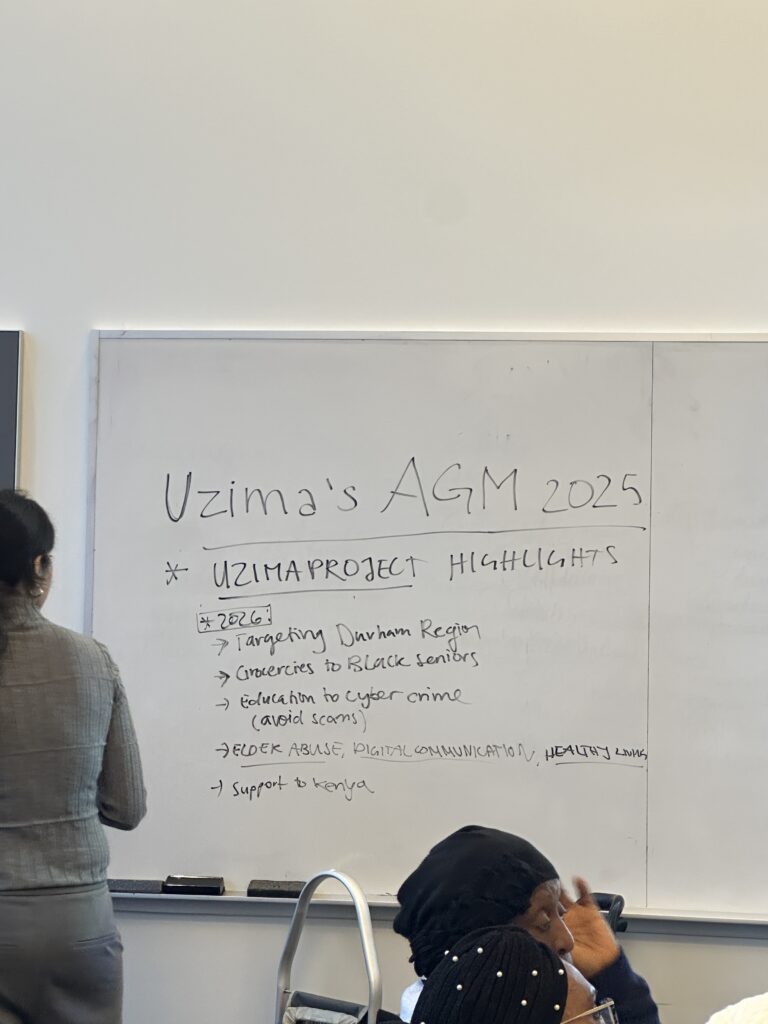 Uzima's AGM 2025
* UZIMAPROJECT HIGHLIGHTS
* 2026:
→ Targeting Durham Region
→ Grocercies to Black seniors
→ Education to cyber crime
(avoid scams)
→ ELDER ABUSE, DIGITAL COMMUNICATION, HEALTHY LIVING
→ Support to Kenya